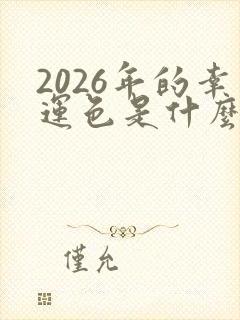 2026年的幸
運色是什麼
僅允